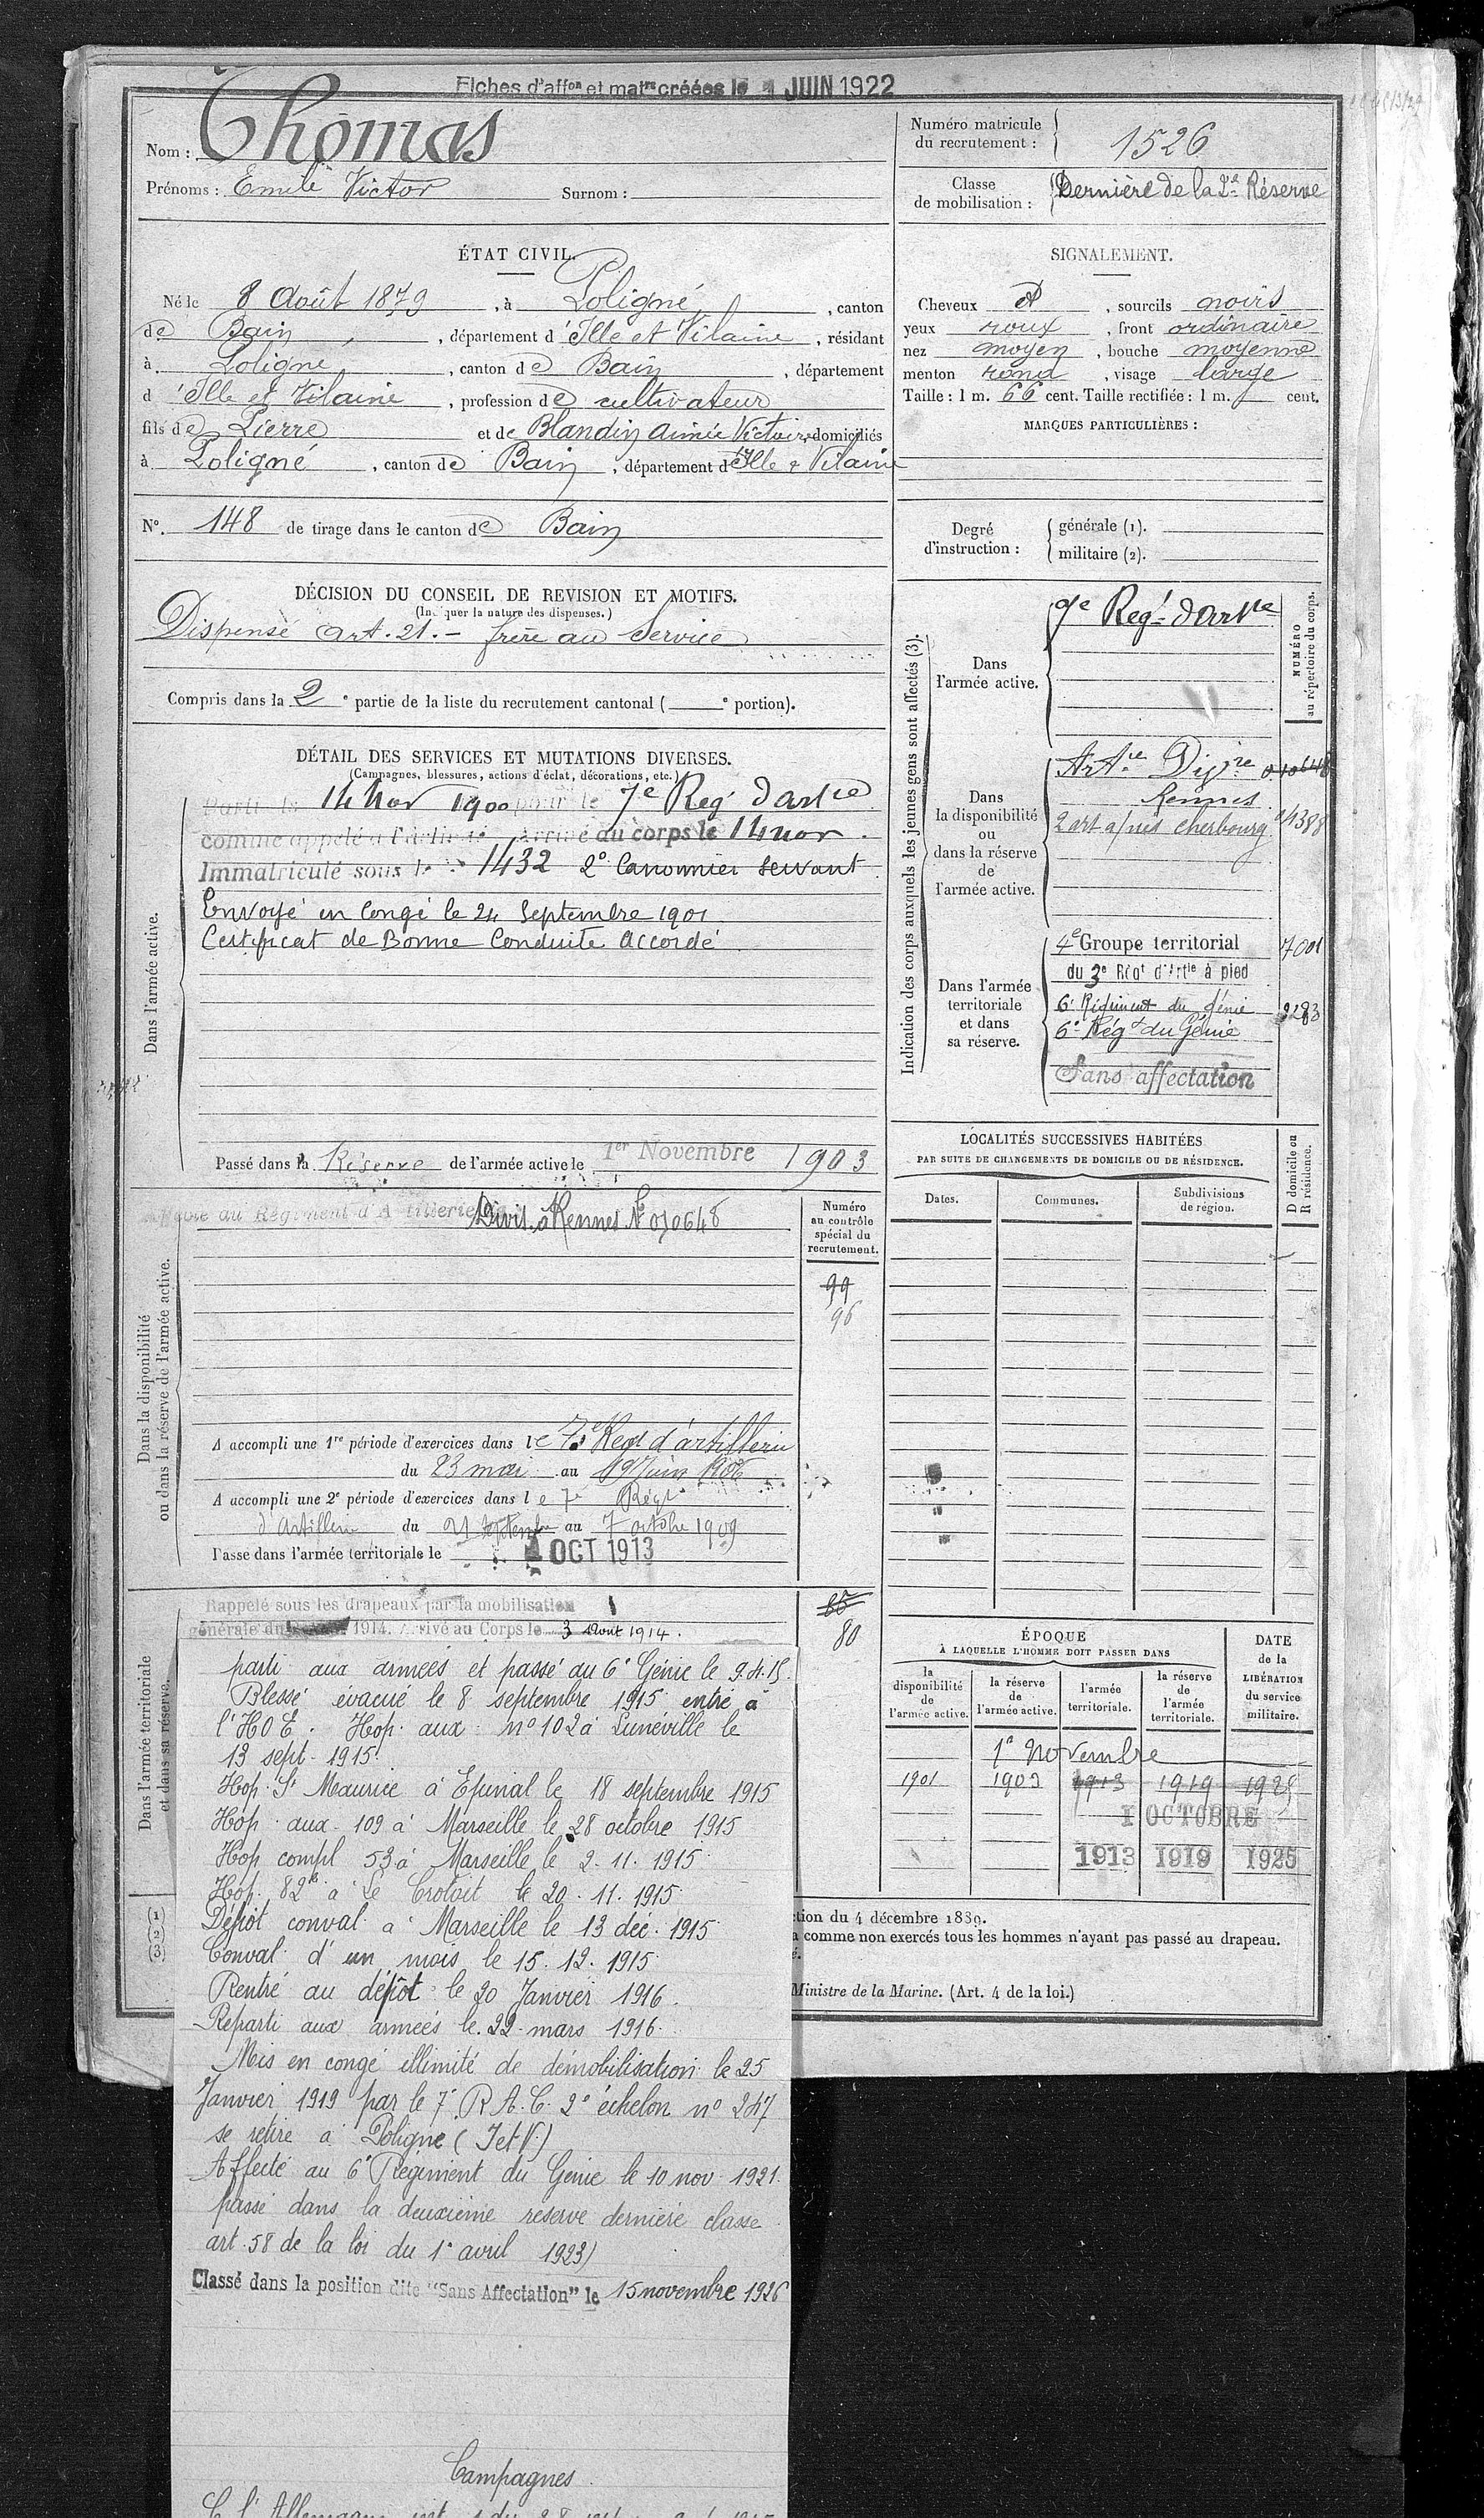 Fiches d'affon et matre créées le 1 JUIN 1922
Nom : Thomas
Prénoms : Emile Victor Surnom :
Numéro matricule du recrutement : 1526
Classe de mobilisation : Dernière de la 2e Réserve
ÉTAT CIVIL.
Né le 8 Août 1879, à Poligné, canton
de Bain, département d'Ille et Vilaine, résidant
à Poligné, canton de Bain, département
d'Ille et Vilaine, profession de cultivateur
fils de Pierre et de Blandin Aimée Victoire domiciliés
à Poligné, canton de Bain, département d'Ille & Vilaine
No. 148 de tirage dans le canton de Bain
SIGNALEMENT.
Cheveux et, sourcils noirs
yeux roux, front ordinaire
nez moyen, bouche moyenne
menton rond, visage large
Taille : 1 m. 66 cent. Taille rectifiée : 1 m. cent.
MARQUES PARTICULIÈRES :
Degré d'instruction : générale (1).
militaire (2).
DÉCISION DU CONSEIL DE REVISION ET MOTIFS.
(Indiquer la nature des dispenses.)
Dispensé art. 21. - frère au service
Compris dans la 2e partie de la liste du recrutement cantonal ( e portion).
DÉTAIL DES SERVICES ET MUTATIONS DIVERSES.
(Campagnes, blessures, actions d'éclat, décorations, etc.)
Dans l'armée active.
Parti le 14 Nov 1900 pour le 7e Regt d'artie
comme appelé à l'activité Arrivé au corps le 14 nov.
Immatriculé sous le No 1432 2e Canonnier servant
Envoyé en Congé le 24 Septembre 1901
Certificat de Bonne Conduite Accordé
Passé dans la Réserve de l'armée active le 1er Novembre 1903
Indication des corps auxquels les jeunes gens sont affectés (3).
NUMÉRO au répertoire du corps.
Dans l'armée active.
7e Regt d'Artie
Dans la disponibilité ou dans la réserve de l'armée active.
Artie Divre 010648
Rennes
2 art a/pied Cherbourg 4388
Dans l'armée territoriale et dans sa réserve.
4e Groupe territorial 7001
du 3e Régt d'Artie à pied
6e Régiment du Génie 3283
6e Régt du Génie
Sans affectation
LOCALITÉS SUCCESSIVES HABITÉES
PAR SUITE DE CHANGEMENTS DE DOMICILE OU DE RÉSIDENCE.
Dates. Communes. Subdivisions de région. D domicile ou R résidence.
Dans la disponibilité ou dans la réserve de l'armée active.
Affecté au Régiment d'Artillerie Divis. à Rennes No 010648
Numéro au contrôle spécial du recrutement.
99
96
A accompli une 1re période d'exercices dans le 7e Regt d'artillerie
du 23 mai au 19 Juin 1906
A accompli une 2e période d'exercices dans le 7e Régt
d'Artillerie du 21 septembre au 7 octobre 1909
Passé dans l'armée territoriale le 1 OCT 1913
Dans l'armée territoriale et dans sa réserve.
Rappelé sous les drapeaux par la mobilisation
générale du 1914. Arrivé au Corps le 3 Août 1914.
80
parti aux armées et passé au 6e Génie le 9.4.15.
Blessé évacué le 8 septembre 1915 entré à
l'HOE. Hop. aux. no 102 à Lunéville le
13 sept. 1915.
Hop. St Maurice à Epinal le 18 septembre 1915
Hop. aux. 109 à Marseille le 28 octobre 1915
Hop compl 53 à Marseille le 2.11.1915
Hop. 82 bis à Le Crotoit le 20.11.1915
Dépôt conval. à Marseille le 13 déc. 1915
Conval. d'un mois le 15.12.1915
Rentré au dépôt le 20 Janvier 1916.
Reparti aux armées le 22 mars 1916.
Mis en congé illimité de démobilisation le 25
Janvier 1919 par le 7e R.A.C. 2e échelon no 247
se retire à Poligné (I et V.)
Affecté au 6e Régiment du Génie le 10 nov. 1921.
passé dans la deuxième reserve dernière classe
art. 58 de la loi du 1e avril 1923)
Classé dans la position dite "Sans Affectation" le 15 novembre 1926
Campagnes
ÉPOQUE
À LAQUELLE L'HOMME DOIT PASSER DANS
la disponibilité de l'armée active. la réserve de l'armée active. l'armée territoriale. la réserve de l'armée territoriale.
DATE de la LIBÉRATION du service militaire.
1er Novembre
1901 1903 1913 1919 1925
1 OCTOBRE
1913 1919 1925
(1)
(2)
(3)
ction du 4 décembre 1889.
a comme non exercés tous les hommes n'ayant pas passé au drapeau.
é.
Ministre de la Marine. (Art. 4 de la loi.)